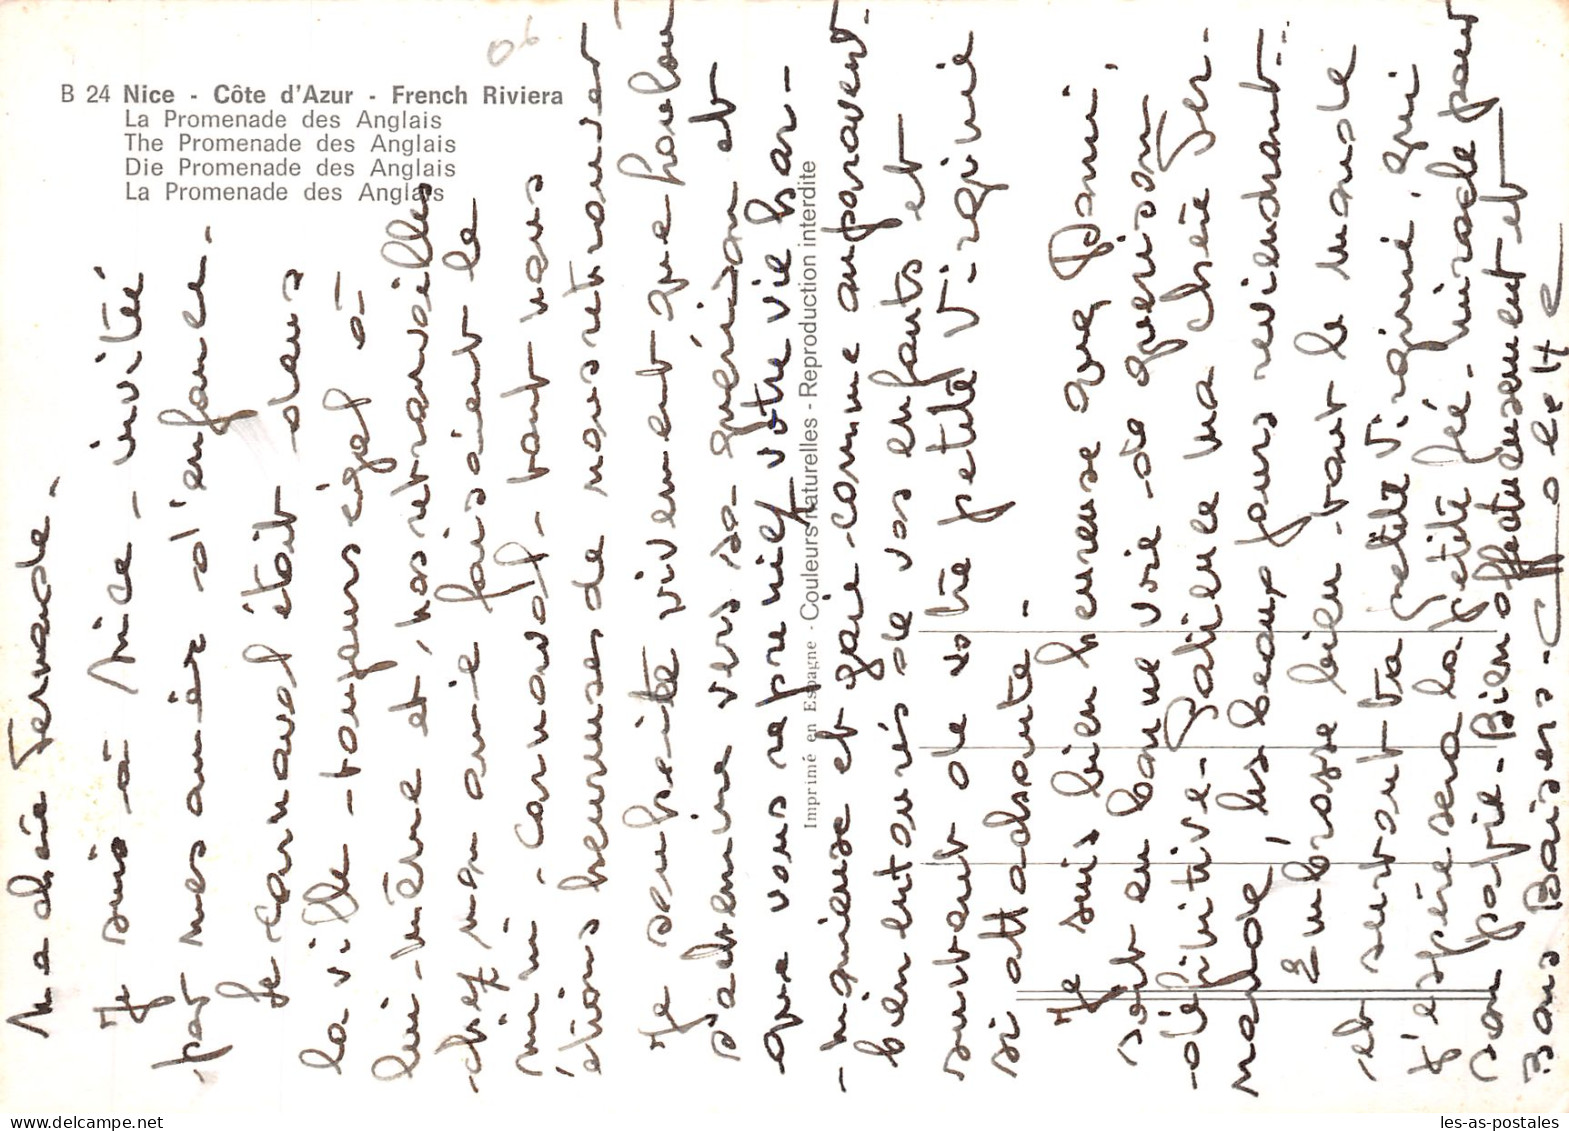 B 24 Nice - Côte d'Azur - French Riviera
La Promenade des Anglais
The Promenade des Anglais
Die Promenade des Anglais
La Promenade des Anglais
Imprimé en Espagne - Couleurs naturelles - Reproduction interdite
Ma chère Fernande -
Je suis à Nice - invité
par mes amies d'enfance -
Le carnaval était dans
la ville - toujours égal à
lui-même et, nos retrouvailles
chez mon amie faisaient le
mini-carnaval - tant nous
étions heureuses de nous retrouver
Je souhaite vivement que
s'achemine vers sa guérison et
que vous repreniez votre vie har-
-monieuse et gaie - comme auparavant -
bien entourés de vos enfants et
surtout de votre petite Virginie
si attachante -
Je suis bien heureuse que Dani,
soit en bonne voie - de guérison
définitive - Patience ma chère Fer-
nande, les beaux jours reviendront -
Embrasse bien - tout le monde
et surtout ta petite Virginie, qui
j'espère sera la petite fée - miracle pour
son papie - Bien affectueusement et
Bons Baisers - Colette
les-as-postales